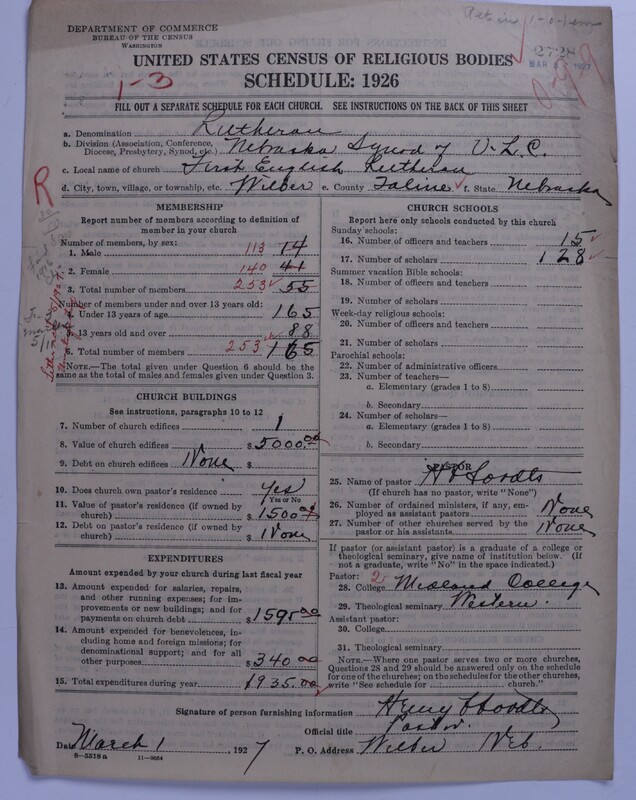 DEPARTMENT OF COMMERCE
BUREAU OF THE CENSUS
WASHINGTON
2728
MAR 1927
UNITED STATES CENSUS OF RELIGIOUS BODIES
1-3
SCHEDULE: 1926
FILL OUT A SEPARATE SCHEDULE FOR EACH CHURCH. SEE INSTRUCTIONS ON THE BACK OF THIS SHEET
a. Denomination Lutheran
b. Division (Association, Conference, Diocese, Presbytery, Synod, etc.) Nebraska Synod of U.L.C.
c. Local name of church First English Lutheran
d. City, town, village, or township, etc. Wilber e. County Saline f. State Nebraska
R
MEMBERSHIP
Report number of members according to definition of
member in your church
Number of members, by sex:
1. Male 113 14
2. Female 140 41
3. Total number of members 253 55
Number of members under and over 13 years old:
4. Under 13 years of age 165
5. 13 years old and over 88
6. Total number of members 253 165
NOTE.—The total given under Question 6 should be the
same as the total of males and females given under Question 3.
CHURCH BUILDINGS
See instructions, paragraphs 10 to 12
7. Number of church edifices 1
8. Value of church edifices $ 5000.00
9. Debt on church edifices None $
10. Does church own pastor's residence Yes
Yes or No
11. Value of pastor's residence (if owned by
church) $ 1500.00
12. Debt on pastor's residence (if owned by
church) $ None
EXPENDITURES
Amount expended by your church during last fiscal year
13. Amount expended for salaries, repairs,
and other running expenses; for im-
provements or new buildings; and for
payments on church debt $ 1595.00
14. Amount expended for benevolences, in-
cluding home and foreign missions; for
denominational support; and for all
other purposes $ 340.00
15. Total expenditures during year $ 1935.00
CHURCH SCHOOLS
Report here only schools conducted by this church
Sunday schools:
16. Number of officers and teachers 15
17. Number of scholars 128
Summer vacation Bible schools:
18. Number of officers and teachers
19. Number of scholars
Week-day religious schools:
20. Number of officers and teachers
21. Number of scholars
Parochial schools:
22. Number of administrative officers
23. Number of teachers—
a. Elementary (grades 1 to 8)
b. Secondary
24. Number of scholars—
a. Elementary (grades 1 to 8)
b. Secondary
PASTOR
25. Name of pastor
(If church has no pastor, write "None")
26. Number of ordained ministers, if any, em-
ployed as assistant pastors None
27. Number of other churches served by the
pastor or his assistants None
If pastor (or assistant pastor) is a graduate of a college or
theological seminary, give name of institution below. (If
not a graduate, write "No" in the space indicated.)
Pastor: 2
28. College Midland College
29. Theological seminary Western
Assistant pastor:
30. College
31. Theological seminary
NOTE.—Where one pastor serves two or more churches,
Questions 28 and 29 should be answered only on the schedule
for one of the churches; on the schedules for the other churches,
write "See schedule for church."
Signature of person furnishing information Henry
Official title Pastor.
Date March 1, 1927 P. O. Address Wilber Neb.
8-5318a 11-9684